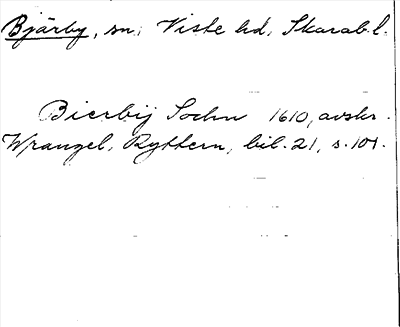 Bjärby, sn, Viste hd, Skarab.l.
Bierbij Sochn 1610, avskr.
Wrangel, Ryttern, bil. 21, s. 101.